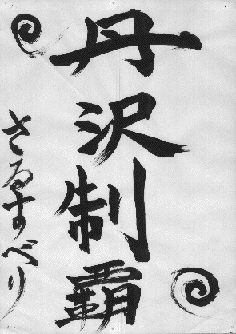 丹沢制覇
さるすべり